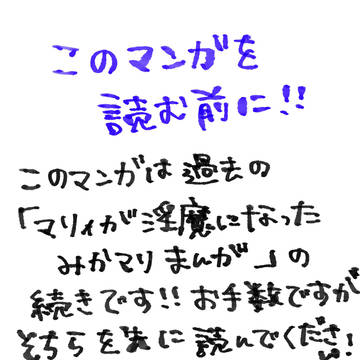 このマンガを
読む前に!!
このマンガは過去の
「マリィが淫魔になった
みかマリまんが」の
続きです!!お手数ですが
そちらを先に読んでください!